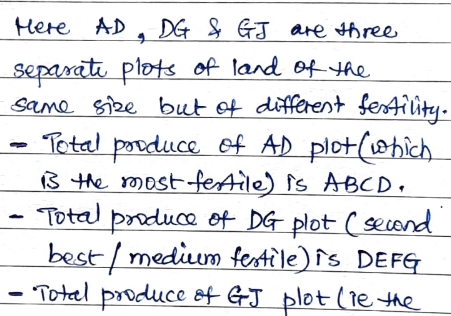 Here AD, DG & GJ are three
separate plots of land of the
same size but of different fertility.
- Total produce of AD plot (which
is the most fertile) is ABCD.
- Total produce of DG plot (second
best / medium fertile) is DEFG
- Total produce of GJ plot (ie the